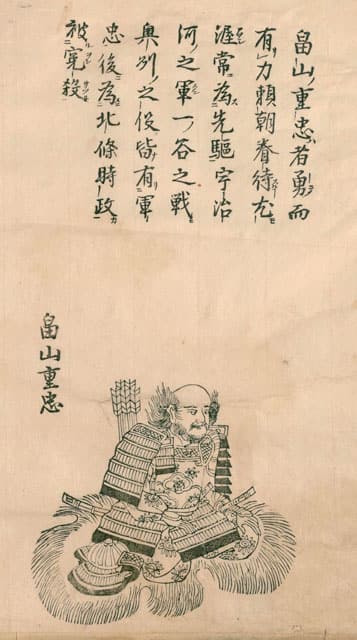 畠山重忠者勇而
有力頼朝眷待尤
渥常為先驅宇治
河之軍一谷之戦
奥州之役皆有軍
忠後為北條時政
被寃殺
畠山重忠